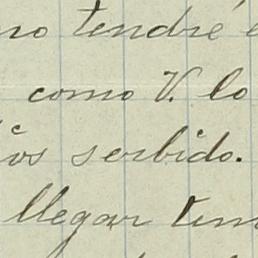 no tendré e
como V. lo
os serbido.
llegar ten